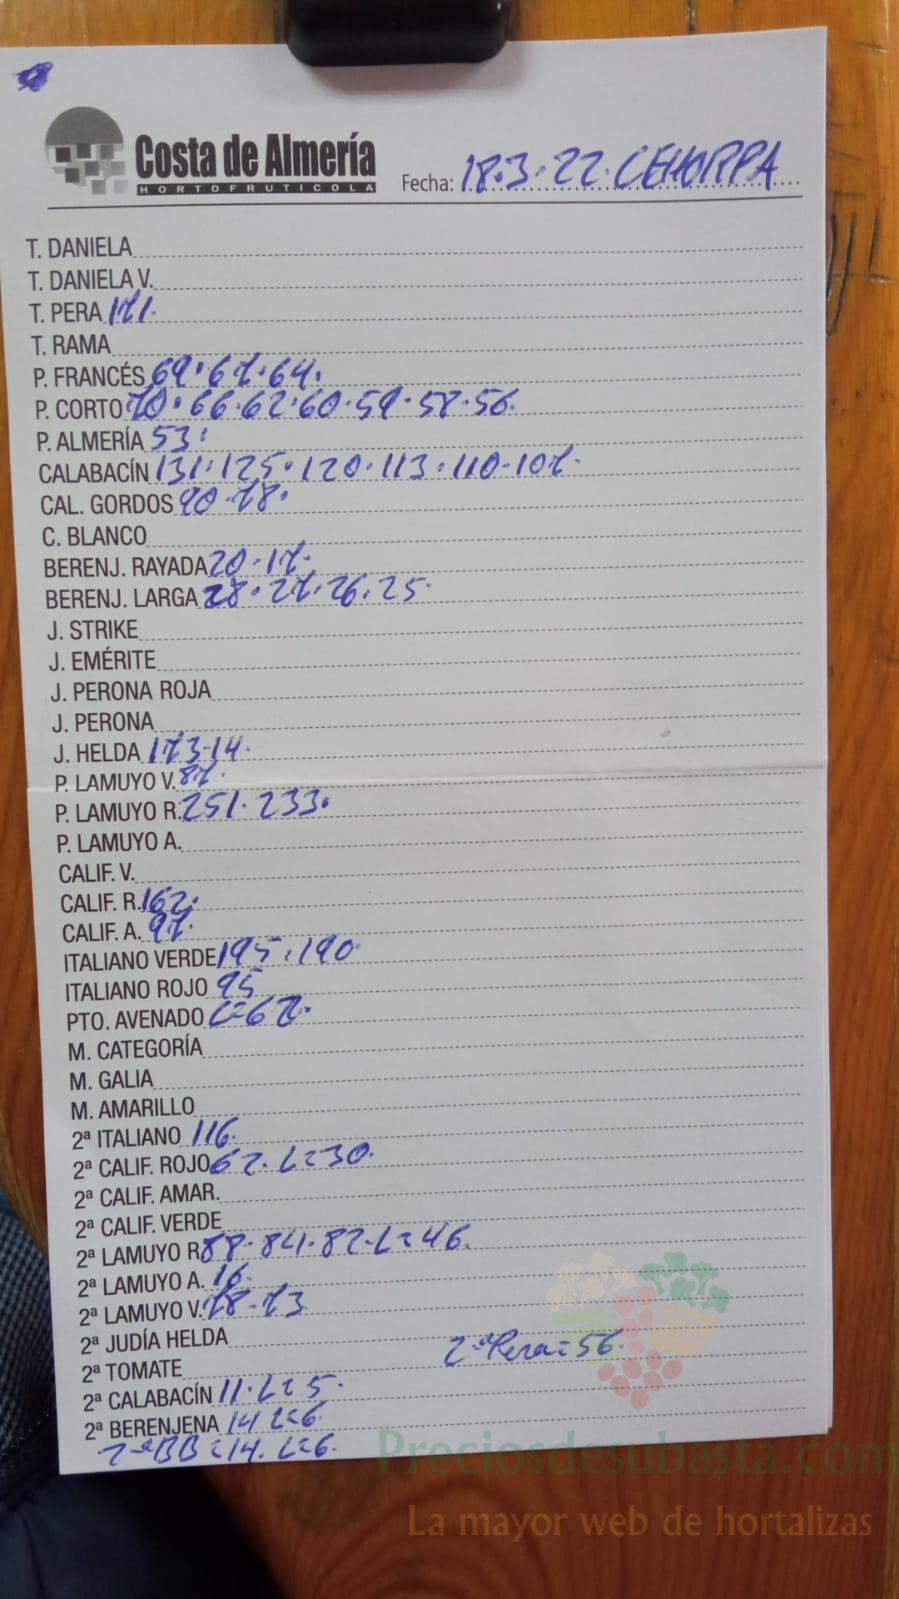 Costa de Almería
HORTOFRUTICOLA
Fecha: 18.3.22. CEHORPA
T. DANIELA
T. DANIELA V.
T. PERA 171.
T. RAMA
P. FRANCÉS 69.67.64.
P. CORTO 70.66.62.60.59.57.56.
P. ALMERÍA 53.
CALABACÍN 131.125.120.113.110.107.
CAL. GORDOS 90.78.
C. BLANCO
BERENJ. RAYADA 20.17.
BERENJ. LARGA 28.27.26.25.
J. STRIKE
J. EMÉRITE
J. PERONA ROJA
J. PERONA
J. HELDA 173.14.
P. LAMUYO V. 87.
P. LAMUYO R. 251.233.
P. LAMUYO A.
CALIF. V.
CALIF. R. 162.
CALIF. A. 97.
ITALIANO VERDE 195.190
ITALIANO ROJO 95
PTO. AVENADO L=67.
M. CATEGORÍA
M. GALIA
M. AMARILLO
2ª ITALIANO 116.
2ª CALIF. ROJO 62. L=30.
2ª CALIF. AMAR.
2ª CALIF. VERDE
2ª LAMUYO R 88.84.82.L=46.
2ª LAMUYO A. 16.
2ª LAMUYO V. 78.73
2ª JUDÍA HELDA
2ª Pera=56.
2ª TOMATE
2ª CALABACÍN 11.L=5.
2ª BERENJENA 14 L=6.
2ªBB=14. L=6.
Preciosdesubasta.com
La mayor web de hortalizas